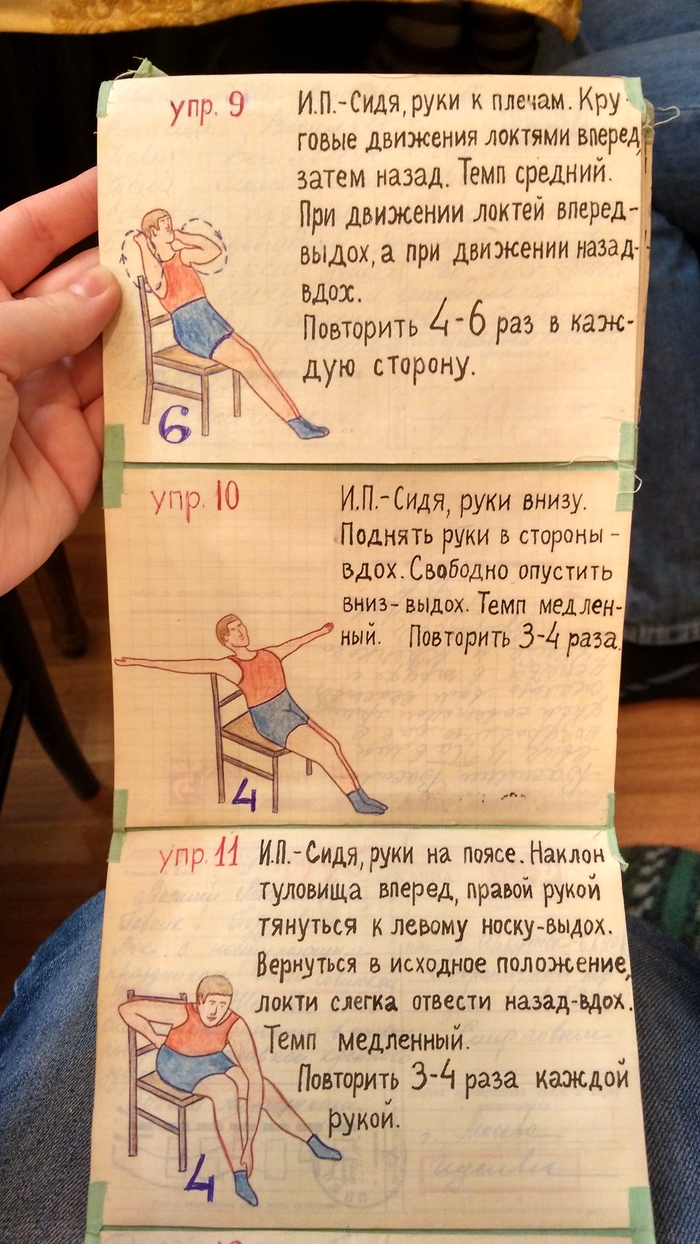 упр. 9
И.П.-Сидя, руки к плечам. Кру-
говые движения локтями вперед,
затем назад. Темп средний.
При движении локтей вперед-
выдох, а при движении назад-
вдох.
Повторить 4-6 раз в каж-
дую сторону.
6
упр. 10
И.П.-Сидя, руки внизу.
Поднять руки в стороны -
вдох. Свободно опустить
вниз-выдох. Темп медлен-
ный. Повторить 3-4 раза.
4
упр. 11
И.П.-Сидя, руки на поясе. Наклон
туловища вперед, правой рукой
тянуться к левому носку-выдох.
Вернуться в исходное положение,
локти слегка отвести назад-вдох.
Темп медленный.
Повторить 3-4 раза каждой
рукой.
4